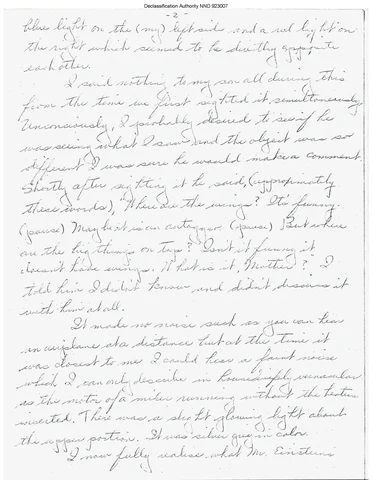 Declassification Authority NND 923007
- 2 -
blue light on the (my) left side and a red light on
the right which seemed to be directly opposite
each other.
I said nothing to my son all during this
from the time we first sighted it simultaneously.
Unconsciously, I probably desired to see if he
was seeing what I saw and the object was so
different I was sure he would make a comment.
Shortly after sighting it he said, (approximately
these words), "Where are the wings? It's funny.
(pause) Maybe it is an autogyro. (pause) But where
are the big things on top? Isn't it funny it
doesn't have wings. What is it, Mother?" I
told him I didn't know and didn't discuss it
with him at all.
It made no noise such as you can hear
an airplane at a distance but at the time it
was closest to me I could hear a faint noise
which I can only describe in housewifely vernacular
as the motor of a mixer running without the beaters
inserted. There was a slight glowing light about
the upper portion. It was silver grey in color.
I now fully realize what Mr. Einstein